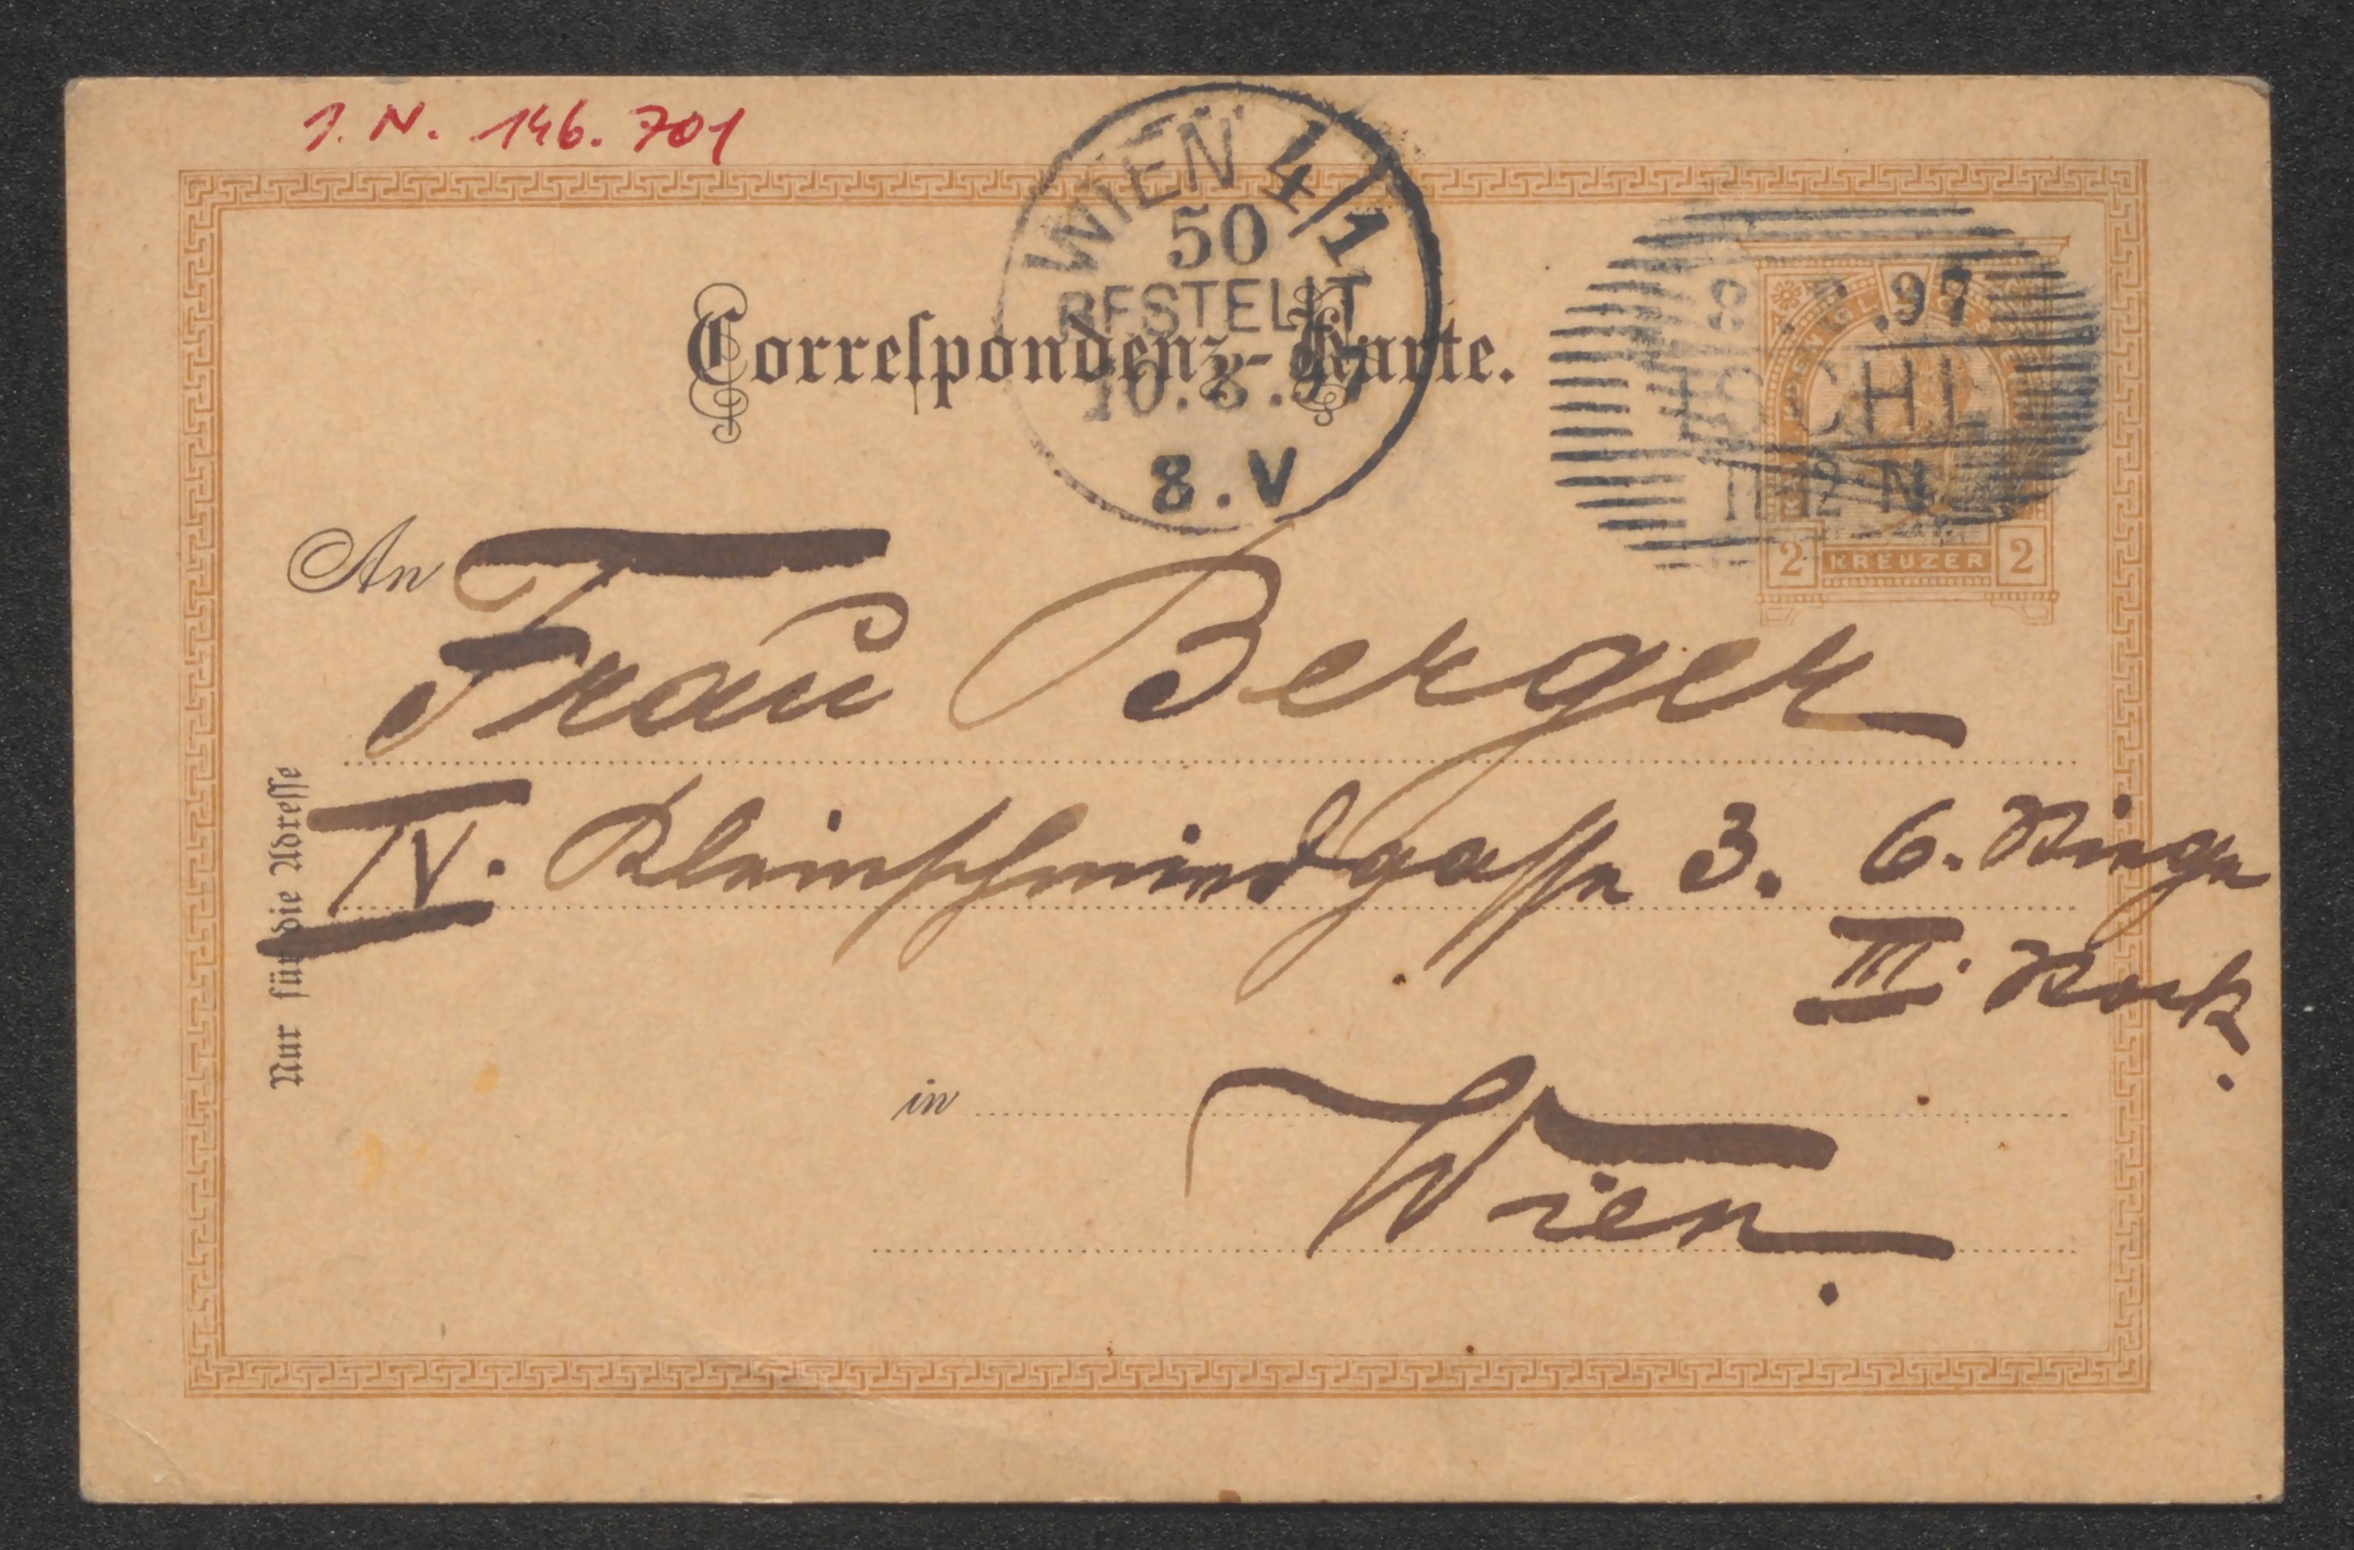 J. N. 146.701
WIEN 4/1
50
BESTELLT
10.8.97
8.V
Correſpondenz-Karte.
9.8.97
ISCHL
11-12 N
2 KREUZER 2
An Frau Berger
IV. Kleinſchmiedgaſſe 3. 6. Stiege
III. Stock.
in
Wien.
Nur für die Adreſſe